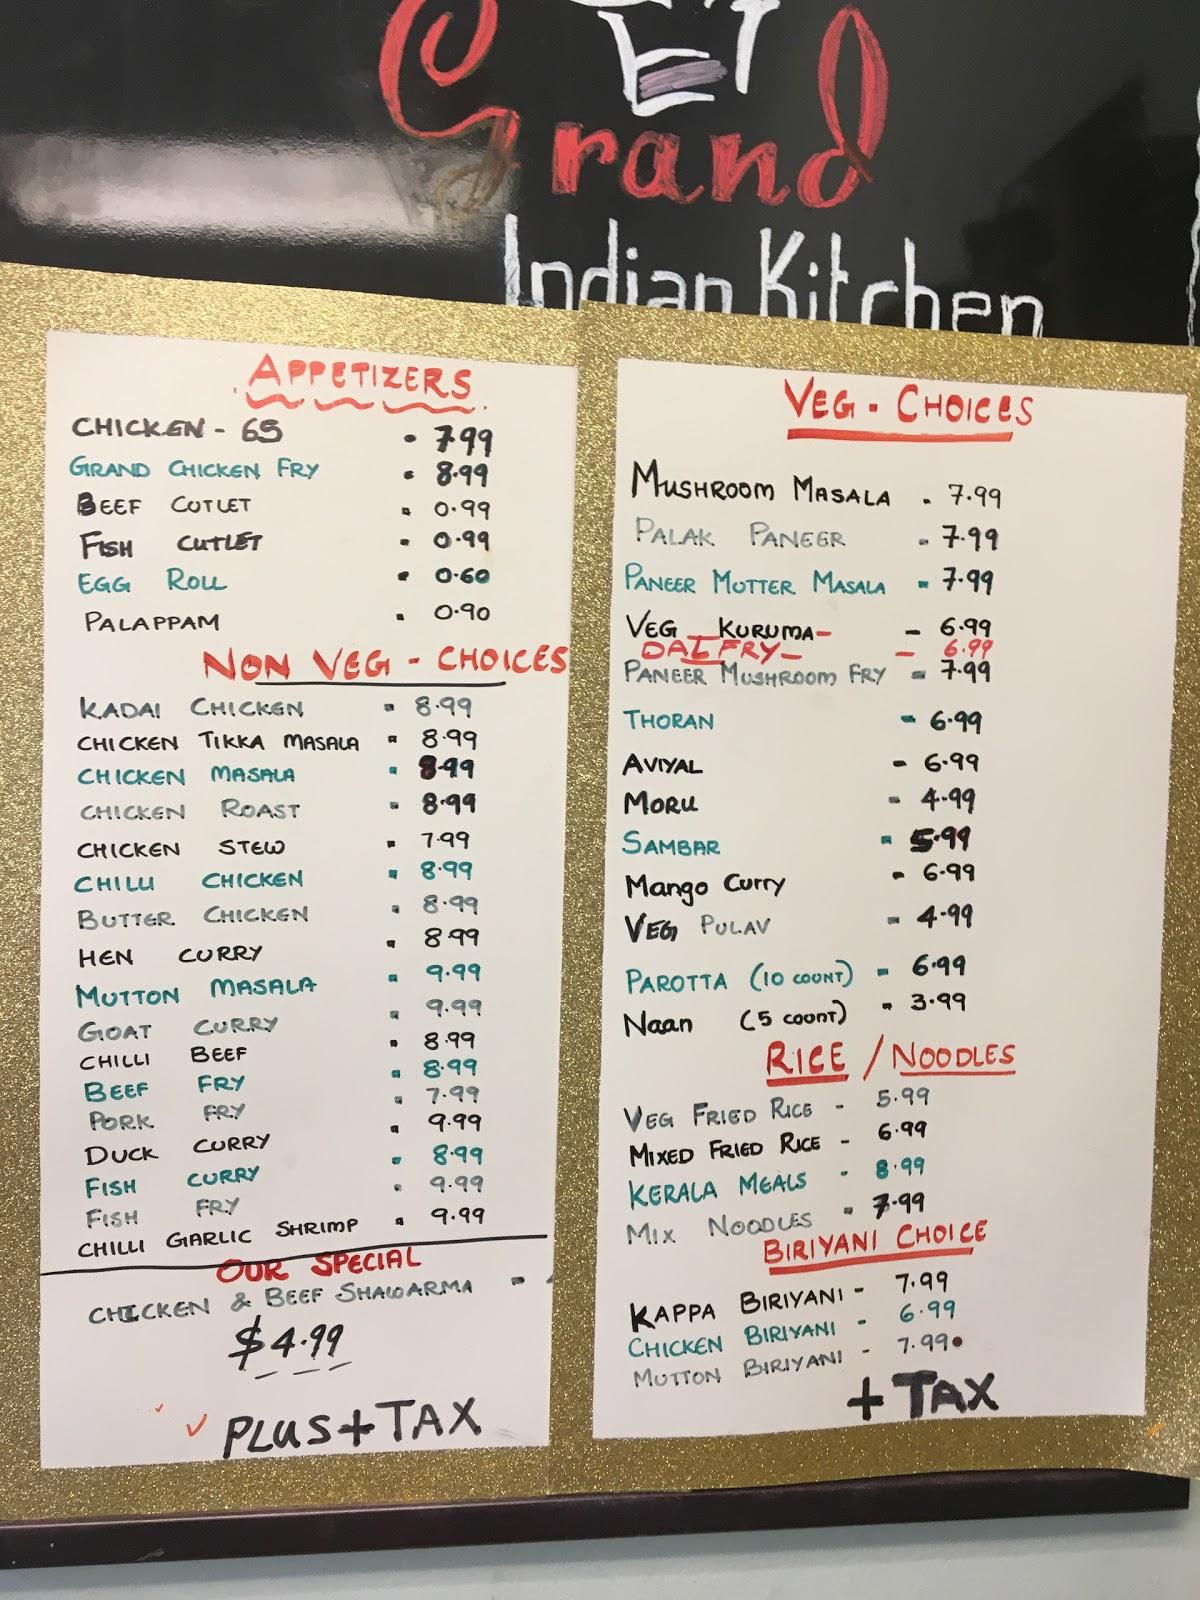 Grand
Indian Kitchen
APPETIZERS
CHICKEN - 65 - 7.99
GRAND CHICKEN FRY - 8.99
BEEF CUTLET - 0.99
FISH CUTLET - 0.99
EGG ROLL - 0.60
PALAPPAM - 0.90
NON VEG - CHOICES
KADAI CHICKEN - 8.99
CHICKEN TIKKA MASALA - 8.99
CHICKEN MASALA - 8.99
CHICKEN ROAST - 8.99
CHICKEN STEW - 7.99
CHILLI CHICKEN - 8.99
BUTTER CHICKEN - 8.99
HEN CURRY - 8.99
MUTTON MASALA - 9.99
GOAT CURRY - 9.99
CHILLI BEEF - 8.99
BEEF FRY - 8.99
PORK FRY - 7.99
DUCK CURRY - 9.99
FISH CURRY - 8.99
FISH FRY - 9.99
CHILLI GARLIC SHRIMP - 9.99
OUR SPECIAL
CHICKEN & BEEF SHAWARMA -
$4.99
PLUS+TAX
VEG - CHOICES
MUSHROOM MASALA - 7.99
PALAK PANEER - 7.99
PANEER MUTTER MASALA - 7.99
VEG KURUMA - 6.99
DAL FRY - 6.99
PANEER MUSHROOM FRY - 7.99
THORAN - 6.99
AVIYAL - 6.99
MORU - 4.99
SAMBAR - 5.99
Mango Curry - 6.99
VEG PULAV - 4.99
PAROTTA (10 COUNT) - 6.99
Naan (5 COUNT) - 3.99
RICE / NOODLES
VEG FRIED RICE - 5.99
MIXED FRIED RICE - 6.99
KERALA MEALS - 8.99
MIX NOODLES - 7.99
BIRIYANI CHOICE
KAPPA BIRIYANI - 7.99
CHICKEN BIRIYANI - 6.99
MUTTON BIRIYANI - 7.99
+ TAX